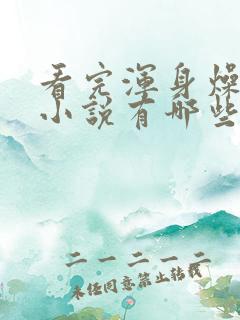 看完浑身燥
小说有哪些
二一二一二
未经同意禁止转载